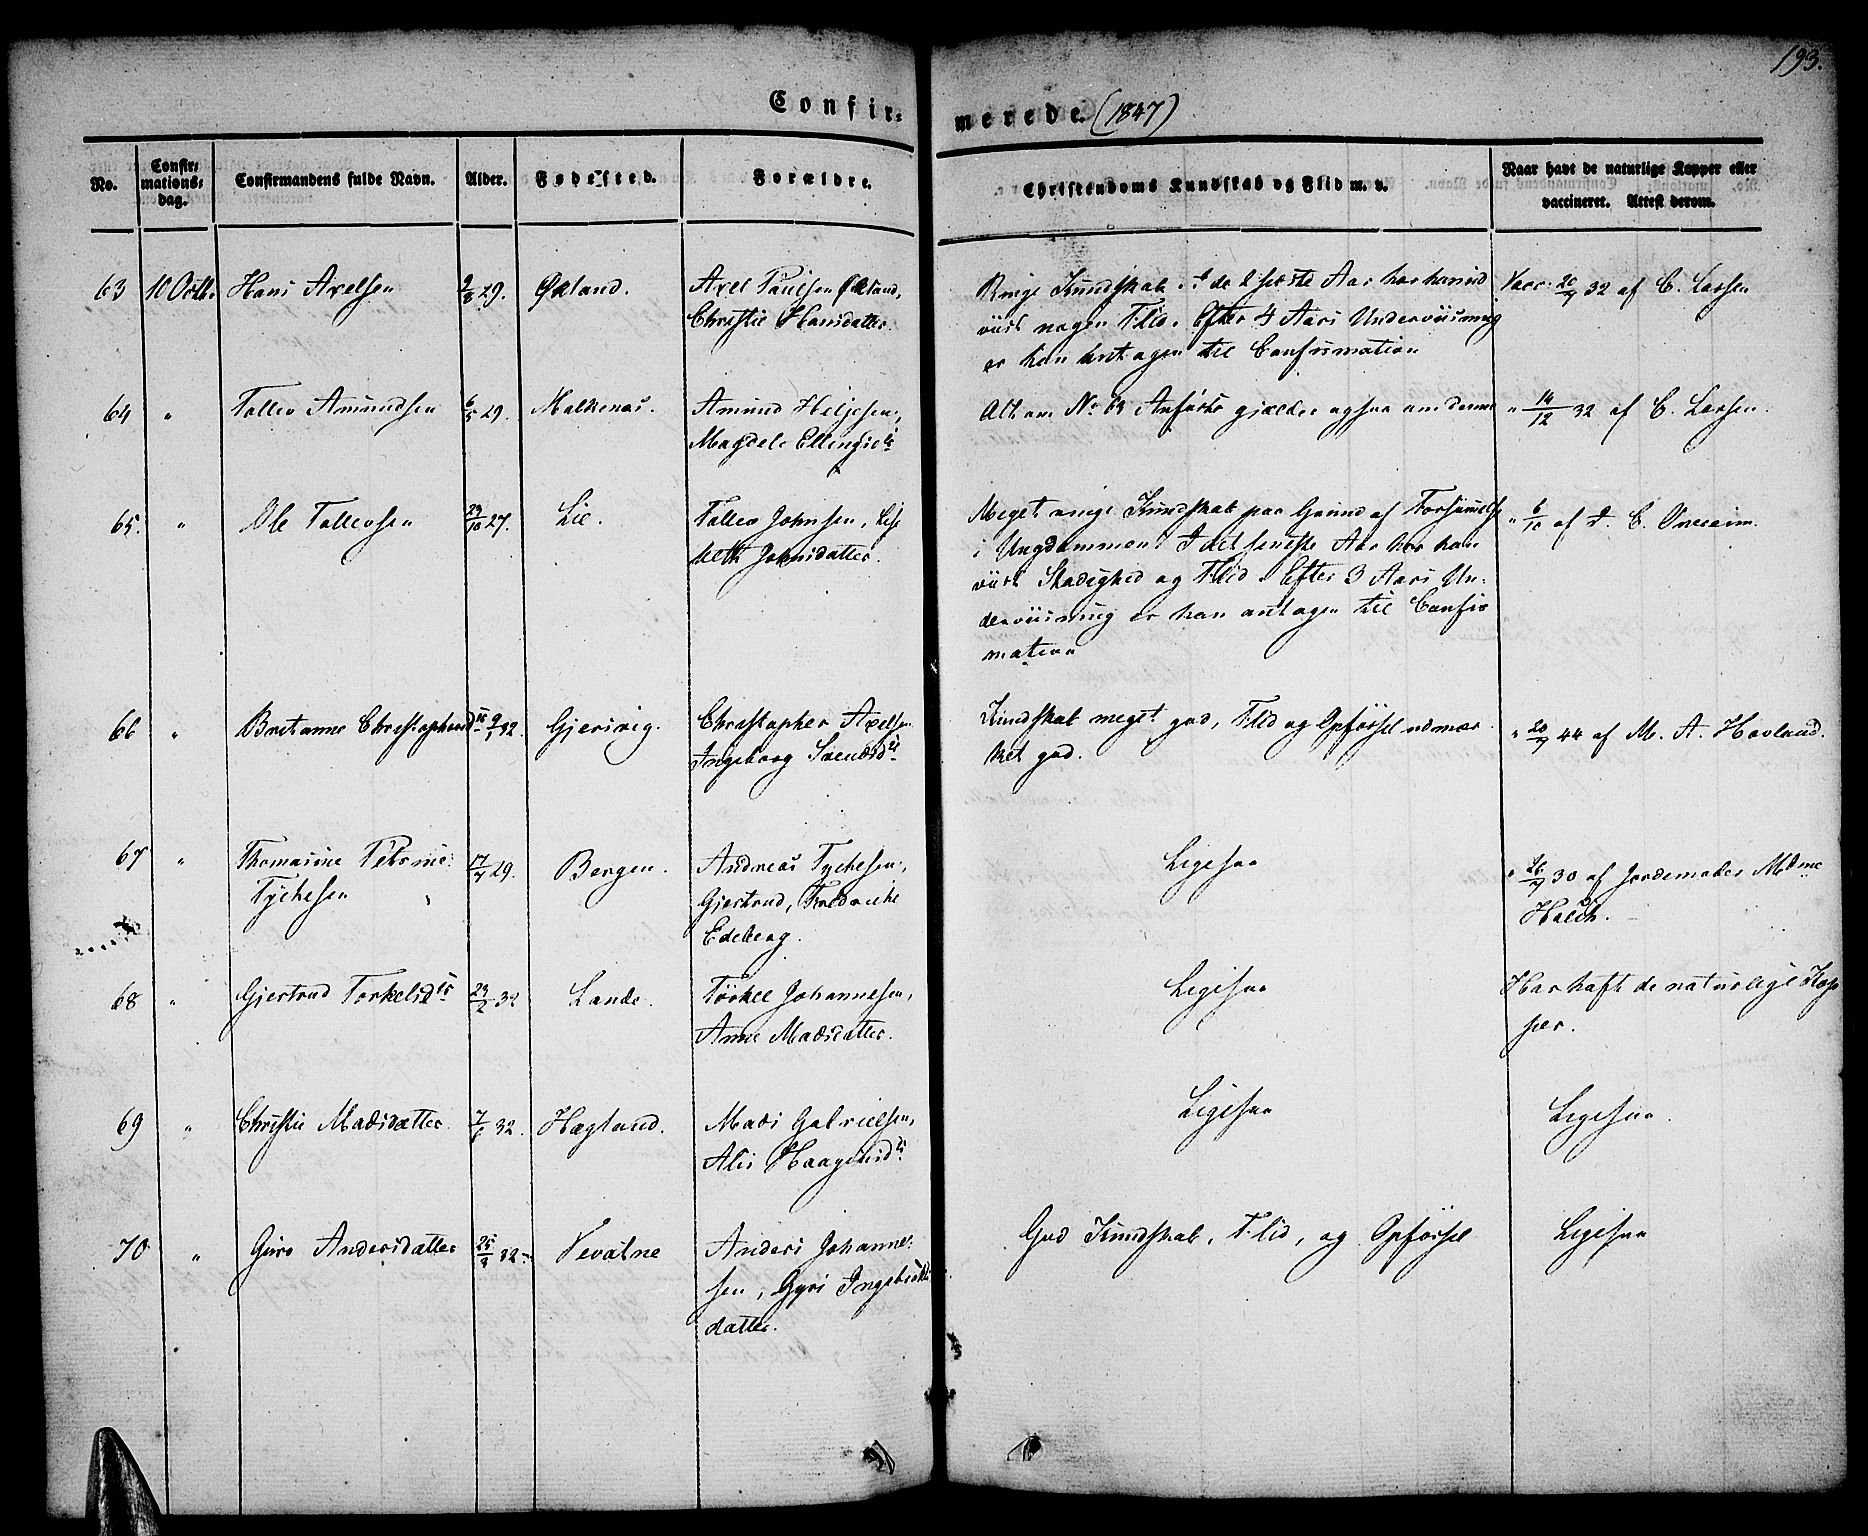 193.
Confir-
merede. (1847)
No.
Confir-
mations-
dag.
Confirmandens fulde Navn.
Alder.
Fødested.
Forældre.
Christendoms Kundskab og Flid m. v.
Naar havt de naturlige Kopper eller
vaccineret. Attest derom.
63
10 Octb.
Hans Axelsen
29.
Øxland.
Axel Paulsen Øxland,
Christie Hansdatter.
Ringe Kundskab. I de 2 første Aar har han ei
viist nogen Flid. Efter 4 Aars Underviisning
er han antagen til Confirmation
Vacc. 20/7 32 af C. Larsen
64
"
Tollev Amundsen
6/5 29.
Malkenæs.
Amund Heljesen,
Magdele Ellingsdtr
Alt om No. 63 Anførte gjælder ogsaa om denne
" 14/12 32 af C. Larsen.
65.
"
Ole Tollevsen
29/10 27.
Lie.
Tollev Johnsen, Lise
beth Johnsdatter.
Meget ringe Kundskab paa Grund af Forsømmelse
i Ungdommen. I det seneste Aar har han
viist Stadighed og Flid. Efter 3 Aars Un-
derviisning er han antagen til Confir
mation
" 6/10 af C.
66
"
Britanne Christophersdtr
9/1 32.
Gjersvig.
Christopher Axelsen
Ingeborg Svendsdtr
Kundskab meget god, Flid og Opførsel udmær
ket god.
" 20/7 44 af M. A. Hovland.
67
"
Thomasine Petrine
Tychesen
17/7 29.
Bergen.
Andreas Tychesen,
Gjertrud, Fredricke
Edeberg.
Ligesaa
" 26/7 30 af Jordemoder Mdme
Holck.
68
"
Gjertrud Torkelsdtr
29/2 32
Lande.
Torkel Johannesen,
Anne Madsdatter.
Ligesaa
Har havt de naturlige Kop
per.
69
"
Christie Madsdatter.
32.
Hagland.
Mads Gabrielsen,
Alis Haagensdtr
Ligesaa
Ligesaa.
70
"
Guro Andersdatter
32.
Nevatne
Anders Johanne-
sen, Gyri Ingebrikts
datter.
God Kundskab, Flid, og Opførsel
Ligesaa